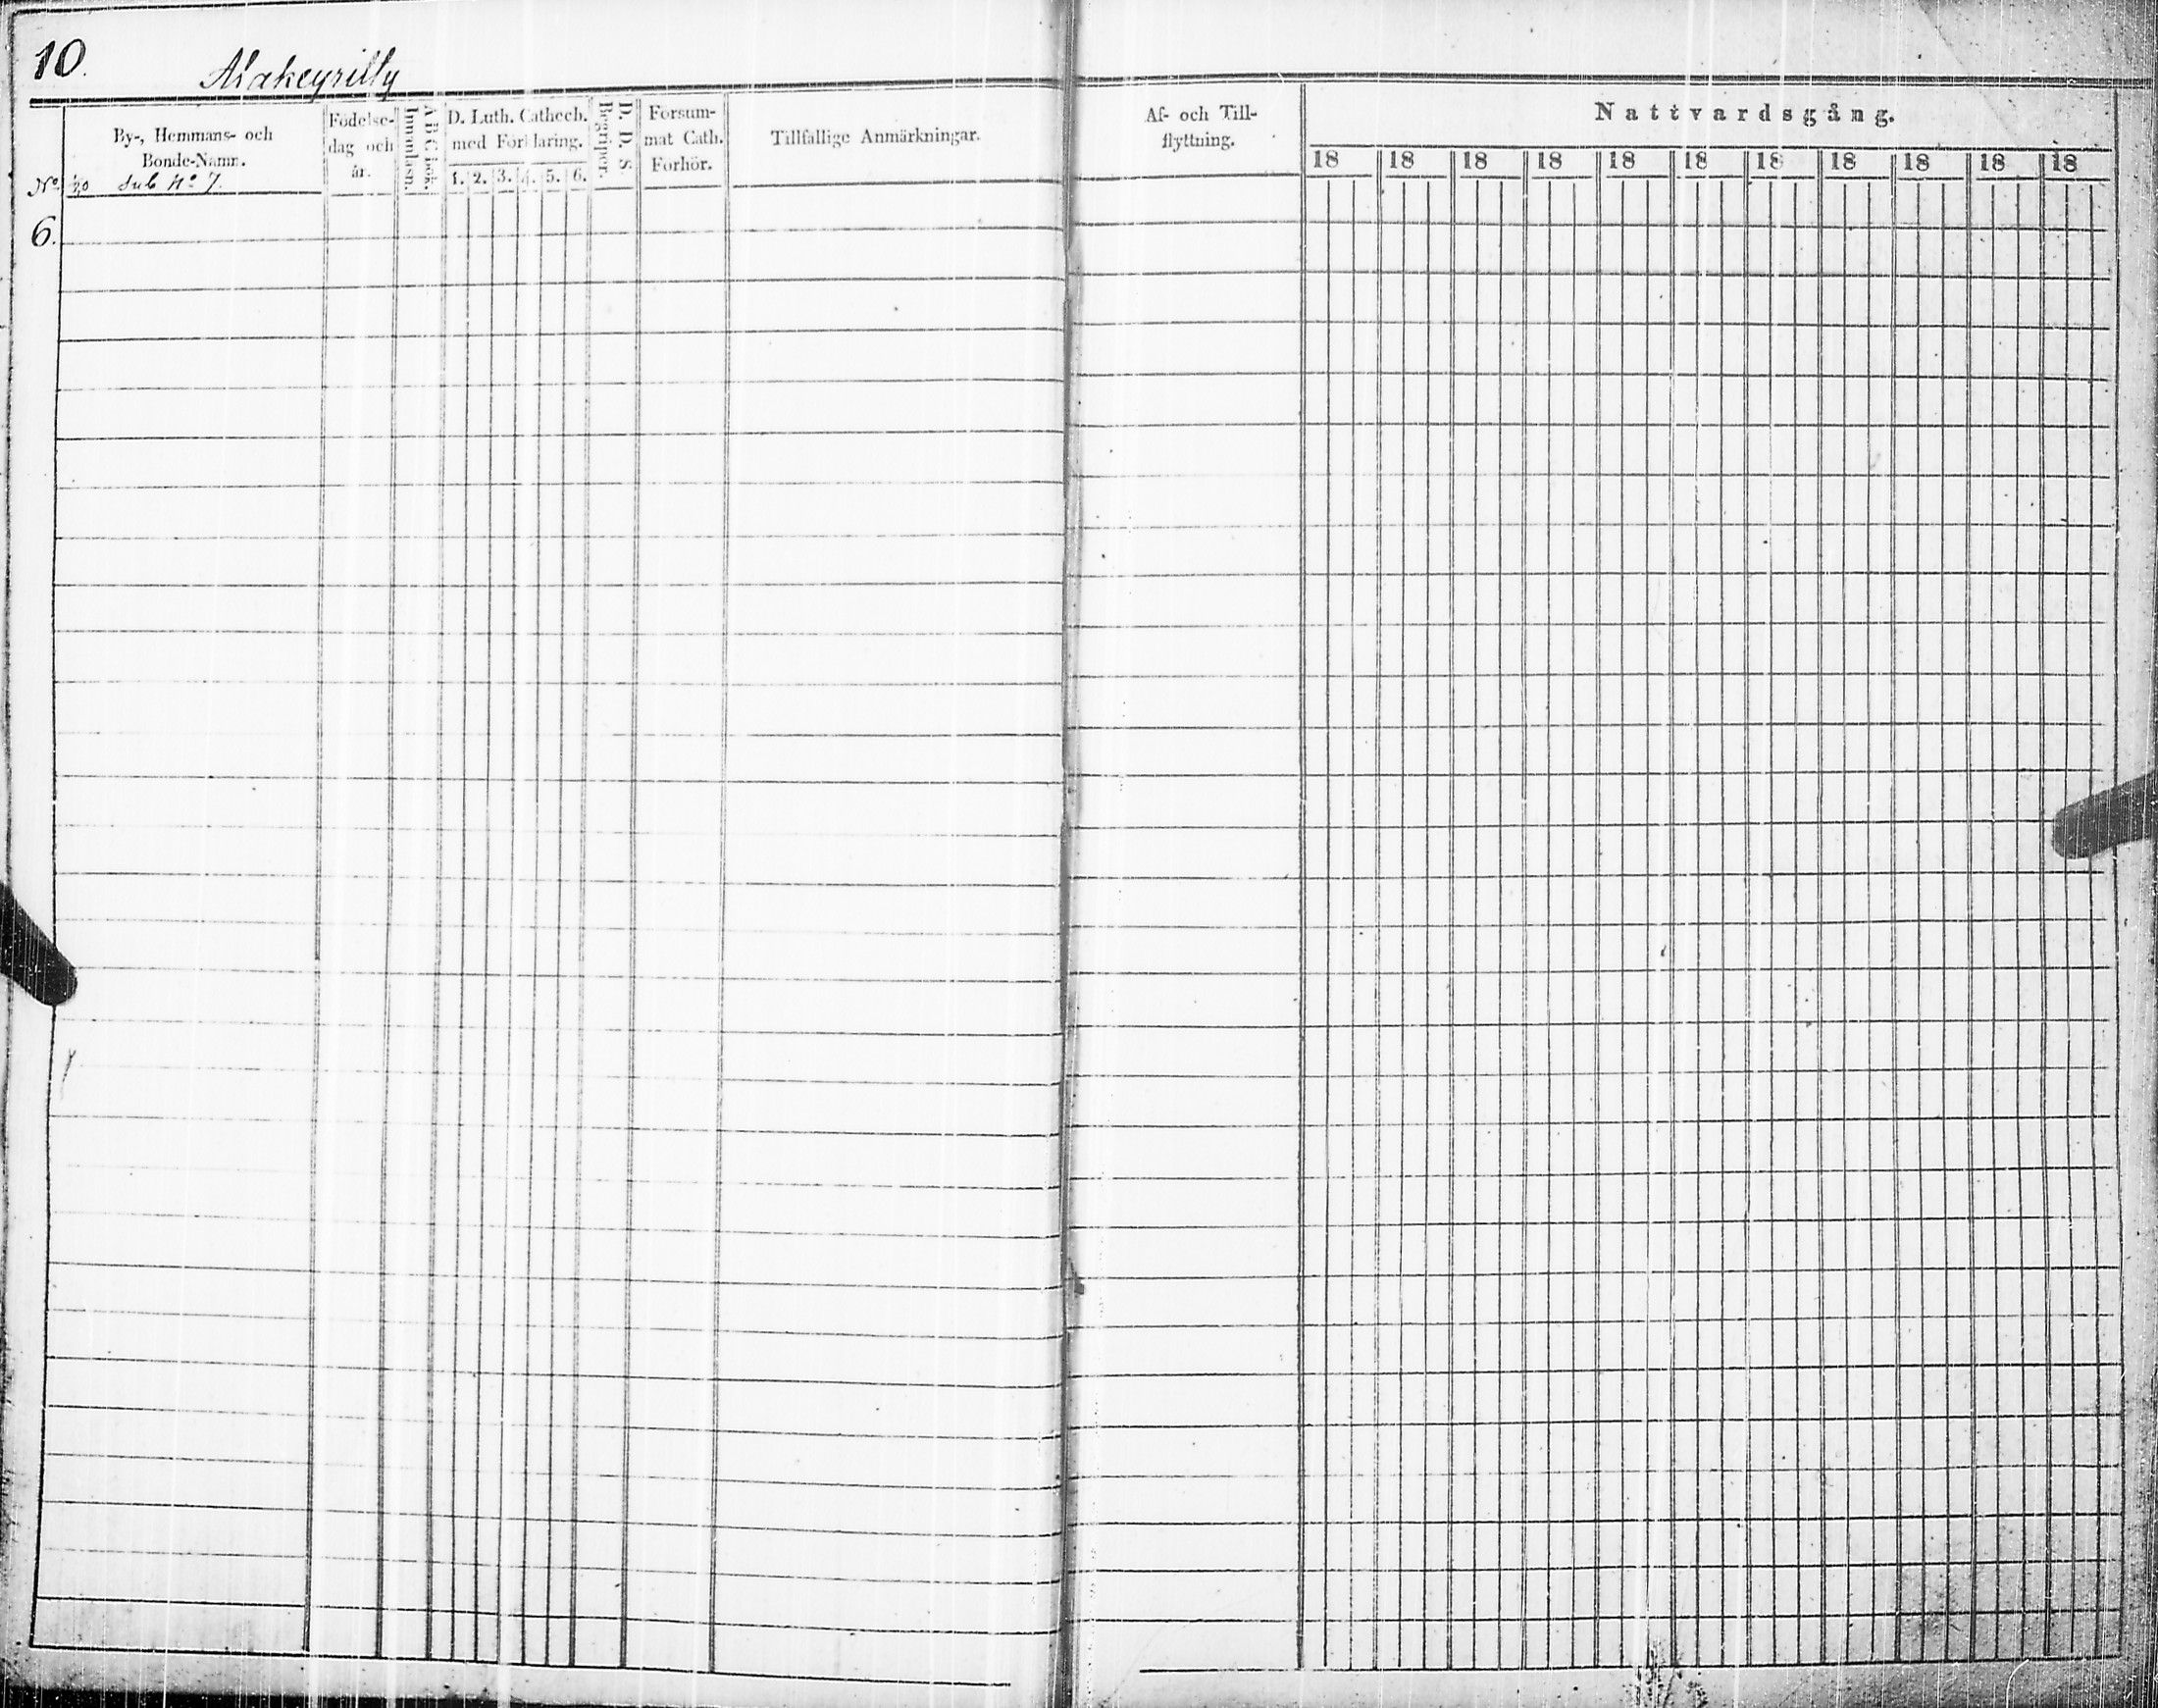 10.
Alakeyrilly
By-, Hemmans- och
Bonde-Namn.
No. sub No 7.
6.
Födelse-
dag och
år.
A B C bok.
Innanläsn.
D. Luth. Cathech.
med Förklaring.
1. 2. 3. 4. 5. 6.
D. D. S.
Begriper.
Försum-
mat Cath.
Förhör.
Tillfällige Anmärkningar.
Af- och Till-
flyttning.
Nattvardsgång.
18 18 18 18 18 18 18 18 18 18 18